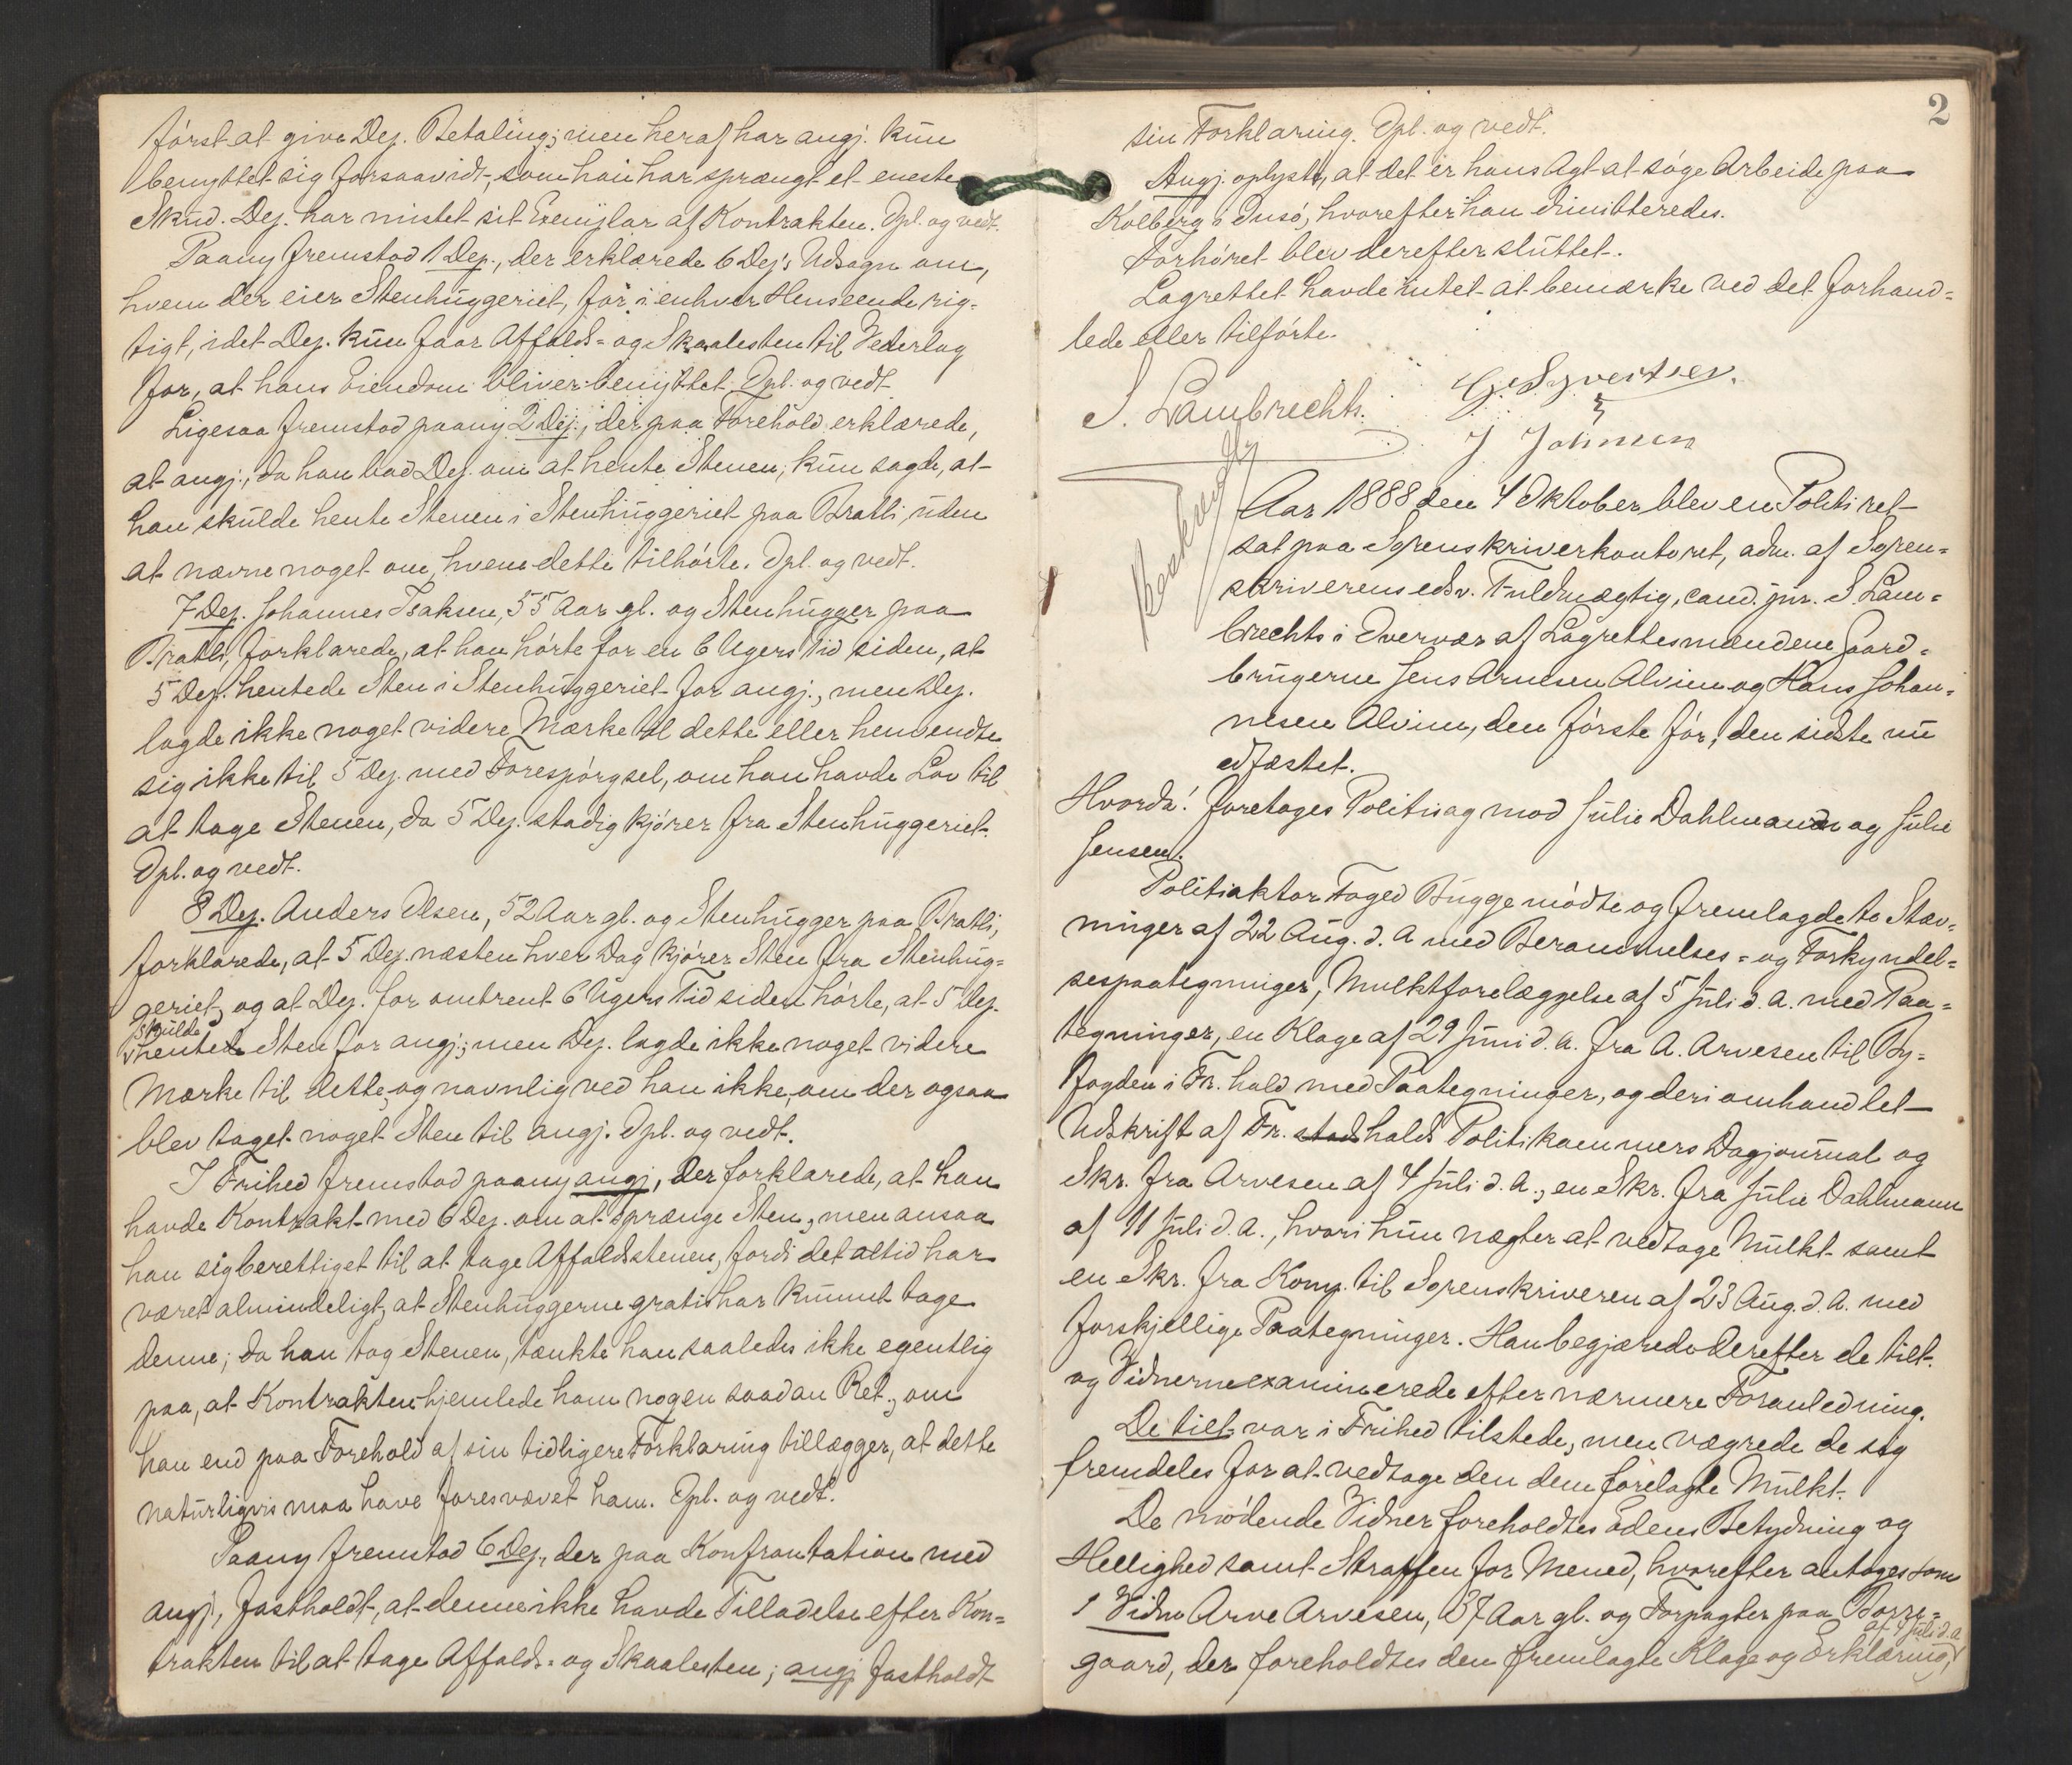 først at give Dep. Betaling; men heraf har angj. kun
benyttet sig forsaavidt, som han har sprængt et eneste
Skud. Dep. har mistet sit Exemplar af Kontrakten. Opl. og vedt.
Paany fremstod 1 Dep., der erklærede 6 Dep's Udsagn om,
hvem der eier Stenhuggeriet, for i enhver Henseende rig-
tigt, idet Dep. kun faar Affalds- og Skaalesten til Vederlag
for, at hans Eiendom bliver benyttet. Opl. og vedt.
Ligesaa fremstod paany 2 Dep., der paa Forehold erklærede,
at angj., da han bad Dep. om at hente Stenen, kun sagde, at
han skulde hente Stenen i Stenhuggeriet paa Bratli, uden
at nævne noget om, hvem dette tilhørte. Opl. og vedt.
7 Dep. Johannes Isaksen, 55 Aar gl. og Stenhugger paa
Bratli, forklarede, at han hørte for en 6 Ugers Tid siden, at
5 Dep. hentede Sten i Stenhuggeriet for angj., men Dep.
lagde ikke noget videre Mærke til dette eller henvendte
sig ikke til 5 Dep. med Forespørgsel, om han havde Lov til
at tage Stenen, da 5 Dep. stadig kjører fra Stenhuggeriet.
Opl. og vedt.
8 Dep. Anders Olsen, 52 Aar gl. og Stenhugger paa Bratli,
forklarede, at 5 Dep. næsten hver Dag kjører Sten fra Stenhug-
geriet, og at Dep. for omtrent 6 Ugers Tid siden hørte, at 5 Dep.
skulde
hente Sten for angj.; men Dep. lagde ikke noget videre
Mærke til dette, og navnlig ved han ikke, om der ogsaa
blev taget noget Sten til angj. Opl. og vedt.
I Frihed fremstod paany angj., der forklarede, at han
havde Kontrakt med 6 Dep. om at sprænge Sten, men ansaa
han sig berettiget til at tage Affaldsstenen, fordi det altid har
været almindeligt, at Stenhuggerne gratis har kunnet tage
denne; da han tog Stenen, tænkte han saaledes ikke egentlig
paa, at Kontrakten hjemlede ham nogen saadan Ret, om
han end paa Forehold af sin tidligere Forklaring tillægger, at dette
naturligvis maa have foresvævet ham. Opl. og vedt.
Paany fremstod 6 Dep., der paa Konfrontation med
angj. fastholdt, at denne ikke havde Tilladelse efter Kon-
trakten til at tage Affalds- og Skaalesten; angj. fastholdt
2
sin Forklaring. Opl. og vedt.
Angj. oplyste, at det er hans Agt at søge Arbeide paa
Kolberg i Onsø, hvorefter han dimitteredes.
Forhøret blev derefter sluttet.
Lagrettet havde intet at bemærke ved det forhand-
lede eller tilførte.
S. Lambrechts. G. Syvertsen.
J Johnsen
Beskreven
Aar 1888 den 4 Oktober blev en Politiret
sat paa Sorenskriverkontoret, adm. af Soren-
skriverens edsv. Fuldmægtig, cand. jur. S. Lam-
brechts i Overvær af Lagrettesmændene Gaard-
brugerne Jens Arnesen Alvim og Hans Johan-
nesen Alvim, den første før, den sidste nu
edfæstet.
Hvorda: foretoges Politisag mod Julie Dahlmann og Julie
Jensen.
Politiaktor Foged Bugge mødte og fremlagde to Stæv-
ninger af 22 Aug. d. A. med Berammelses- og Forkyndel-
sespaategninger, Mulktforelæggelse af 5 Juli d. A. med Paa-
tegninger, en Klage af 29 Juni d. A. fra A. Arvesen til By-
fogden i Fr. hald med Paategninger, og deri omhandlet
Udskrift af Fr. stad halds Politikammers Dagjournal og
Skr. fra Arvesen af 4 Juli d. A., en Skr. fra Julie Dahlmann
af 11 Juli d. A., hvori hun nægter at vedtage Mulkt samt
en Skr. fra Komp. til Sorenskriveren af 23 Aug. d. A. med
forskjellige Paategninger. Han begjærede derefter de tilt.
og Vidnerne examinerede efter nærmere Foranledning.
De tilt. var i Frihed tilstede, men vægrede de sig
fremdeles for at vedtage den dem forelagte Mulkt.
De mødende Vidner foreholdtes Edens Betydning og
Hellighed samt Straffen for Mened, hvorefter antoges som
1 Vidne Arve Arvesen, 37 Aar gl. og Forpagter paa Borre-
af 4 Juli d. A
gaard, der foreholdtes den fremlagte Klage og Erklæring,